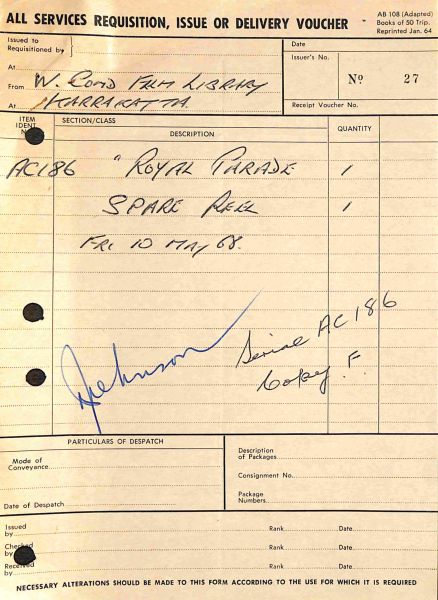 ALL SERVICES REQUISITION, ISSUE OR DELIVERY VOUCHER
AB 108 (Adapted)
Books of 50 Trip.
Reprinted Jan. 64
Issued to
Requisitioned by
Date
At
Issuer's No.
No 27
From W. COMD FILM LIBRARY
At KARRAKATTA
Receipt Voucher No.
ITEM IDENT
SECTION/CLASS
DESCRIPTION
QUANTITY
AC186 "ROYAL PARADE 1
SPARE REEL 1
FRI 10 MAY 68.
Serial AC 186
Copy F.
PARTICULARS OF DESPATCH
Mode of
Conveyance
Date of Despatch
Description
of Packages
Consignment No.
Package
Numbers
Issued
by Rank Date
Checked
by Rank Date
Received
by Rank Date
NECESSARY ALTERATIONS SHOULD BE MADE TO THIS FORM ACCORDING TO THE USE FOR WHICH IT IS REQUIRED